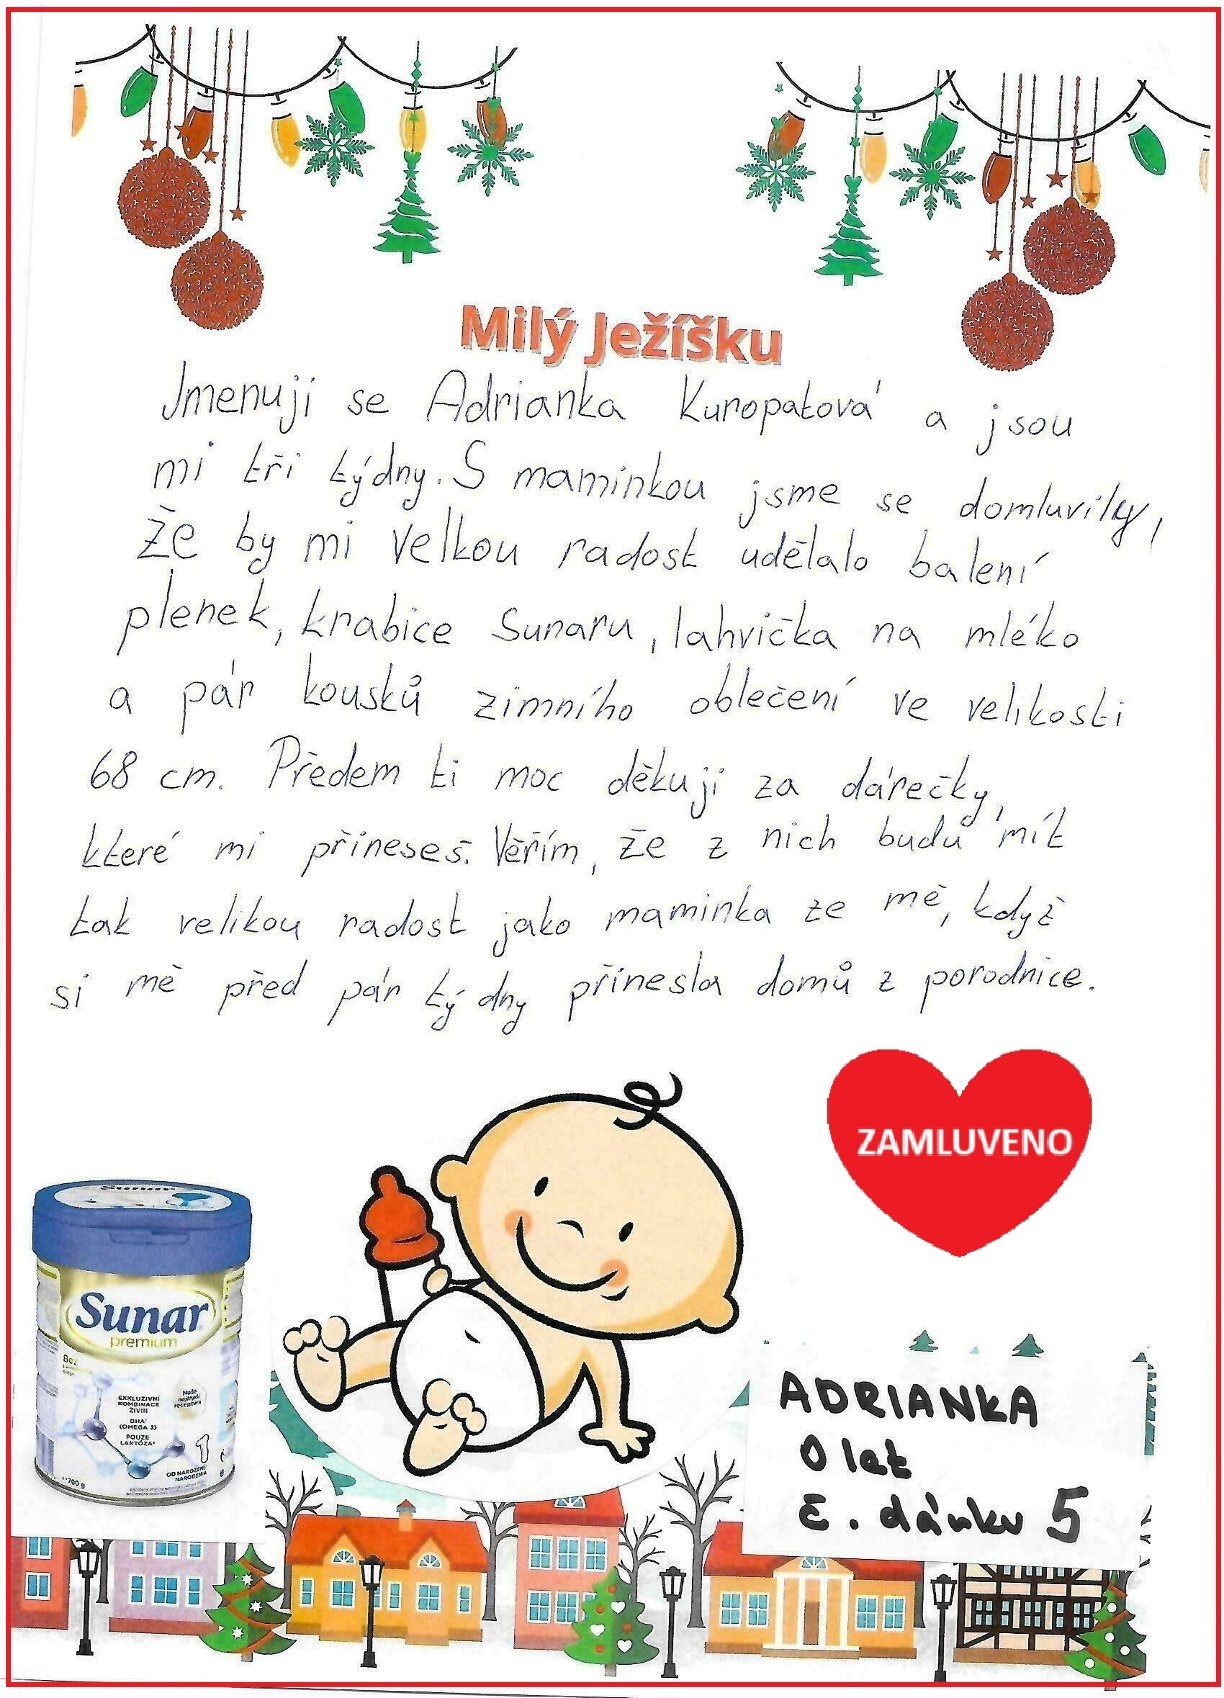 Milý Ježíšku
Jmenuji se Adrianka Kuropatová a jsou
mi tři týdny. S maminkou jsme se domluvily,
že by mi velkou radost udělalo balení
plenek, krabice Sunaru, lahvička na mléko
a pár kousků zimního oblečení ve velikosti
68 cm. Předem ti moc děkuji za dárečky,
které mi přineseš. Věřím, že z nich budu mít
tak velikou radost jako maminka ze mě, když
si mě před pár týdny přinesla domů z porodnice.
ZAMLUVENO
Sunar
Sunar
premium
EXKLUZIVNÍ
KOMBINACE
ŽIVIN
DHA
(OMEGA 3)
POUZE
LAKTÓZA
1
OD NAROZENÍ
NARODENIA
700 g
ADRIANKA
0 let
č. dárku 5